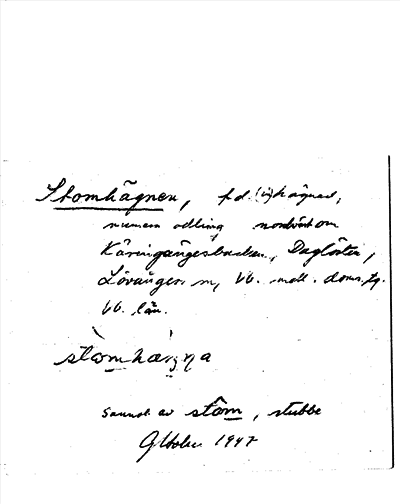 Stomhägnen, f.d. (in)hägnad,
numera odling nordväst om
Käringängesbacken, Daglösten,
Lövångers sn, Vb. mell. doms.sg.
Vb. län.
stomhægna
samt av stom, stubbe
Oktober 1947